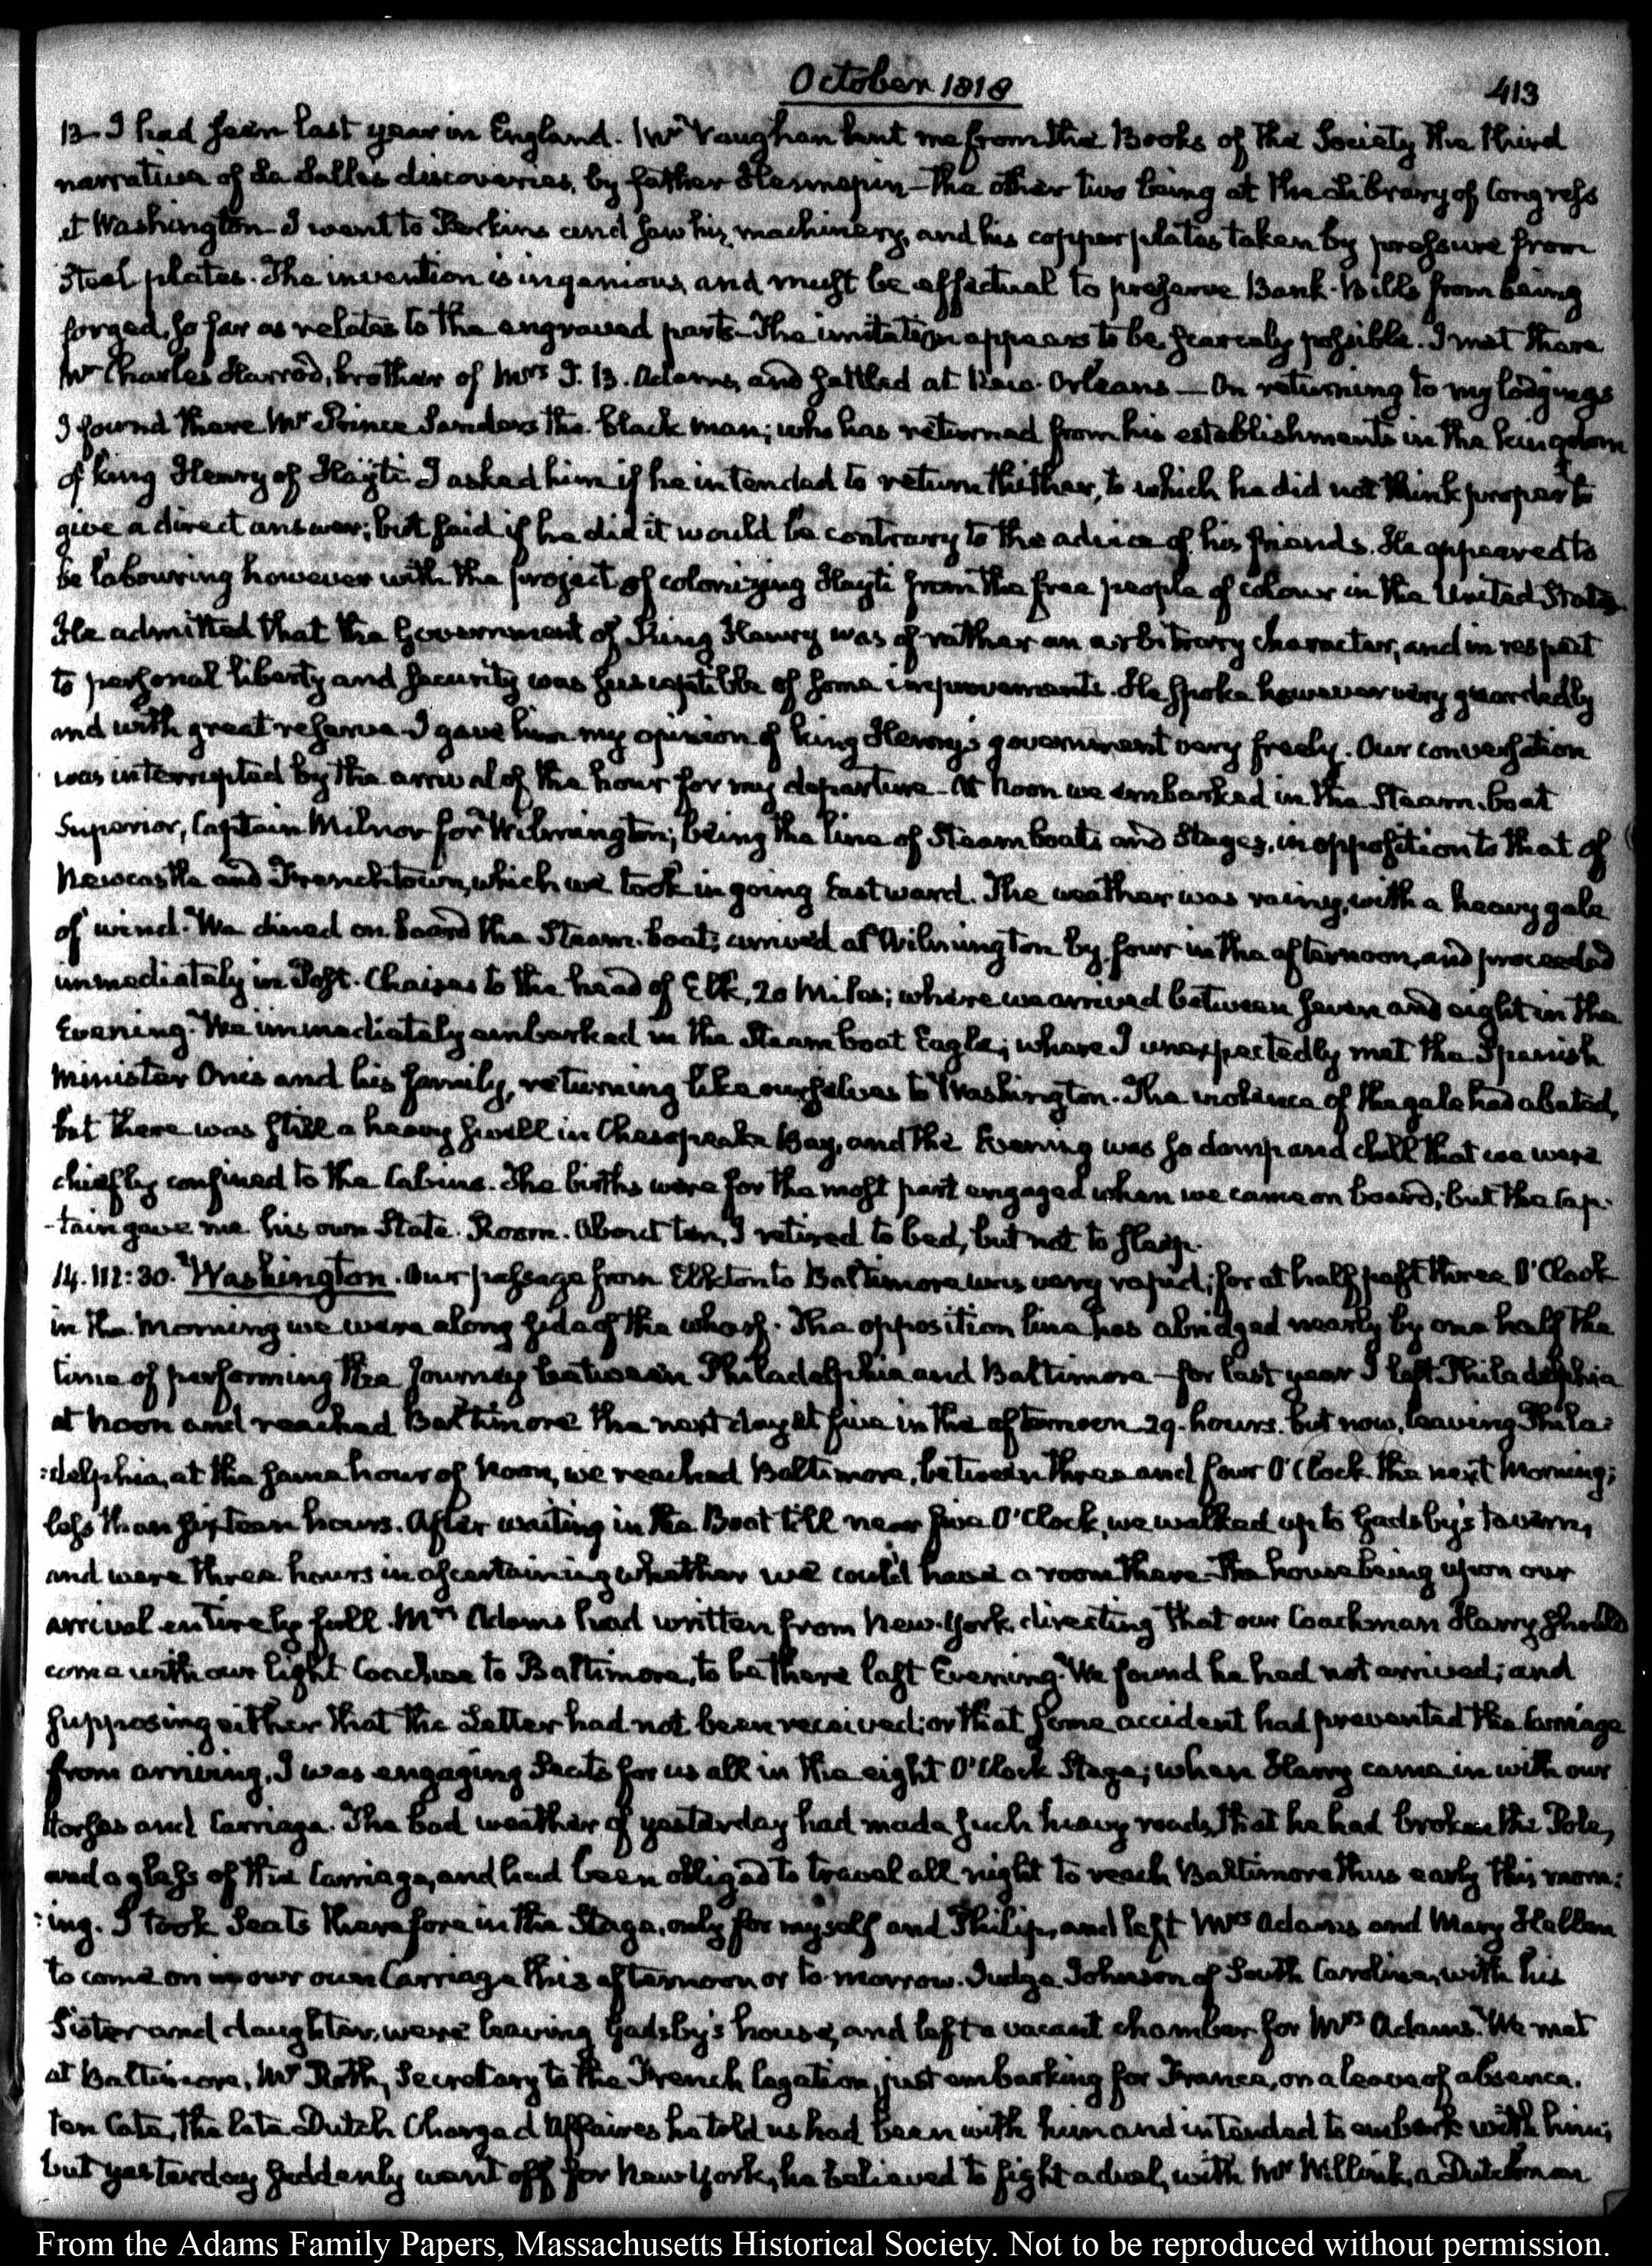 October 1818
413
13— I had seen last year in England. Mr. Vaughan lent me from the Books of the Society the third
narrative of La Salle's discoveries, by father Hennepin— The other two being at the Library of Congress
at Washington— I went to Perkins and saw his machinery, and his copper plates taken by pressure from
Steel plates. The invention is ingenious, and must be effectual to preserve Bank-Bills from being
forged, so far as relates to the engraved part— The imitation appears to be scarcely possible. I met there
Mr Charles Harrod, brother of Mrs T. B. Adams, and settled at New-Orleans— On returning to my lodgings
I found there Mr Prince Sanders the black man; who has returned from his establishments in the kingdom
of king Henry of Hayti. I asked him if he intended to return thither, to which he did not think proper to
give a direct answer; but said if he did it would be contrary to the advice of his friends. He appeared to
be labouring however with the project of colonizing Hayti from the free people of colour in the United States
He admitted that the Government of King Henry was of rather an arbitrary character, and in respect
to personal liberty and security was susceptible of some improvements. He spoke however very guardedly
and with great reserve— I gave him my opinion of king Henry's government very freely. Our conversation
was interrupted by the arrival of the hour for my departure— At Noon we embarked in the Steam-boat
Superior, Captain Milnor for Wilmington; being the line of Steam boats and Stages, in opposition to that of
Newcastle and Frenchtown, which we took in going Eastward. The weather was rainy, with a heavy gale
of wind. We dined on board the Steam-boat; arrived at Wilmington by four in the afternoon, and proceeded
immediately in Post-Chaises to the head of Elk, 20 Miles; where we arrived between seven and eight in the
Evening. We immediately embarked in the Steam boat Eagle; where I unexpectedly met the Spanish
Minister Onis and his family, returning like ourselves to Washington. The violence of the gale had abated,
but there was still a heavy swell in Chesapeake Bay, and the Evening was so damp and chill that we were
chiefly confined to the Cabins. The births were for the most part engaged when we came on board; but the Cap-
-tain gave me his own State-Room. About ten, I retired to bed, but not to sleep.
14. III:30. Washington. Our passage from Elkton to Baltimore was very rapid; for at half past three O'Clock
in the Morning we were along side of the wharf. The opposition line has abridged nearly by one half the
time of performing the Journey between Philadelphia and Baltimore— for last year I left Philadelphia
at Noon and reached Baltimore the next day at five in the afternoon 29. hours. but now, leaving Phila:
:delphia, at the same hour of Noon, we reached Baltimore, between three and four O'Clock the next Morning;
less than sixteen hours. After waiting in the Boat till near five O'Clock, we walked up to Gadsby's tavern,
and were three hours in ascertaining whether we could have a room there— The house being upon our
arrival entirely full. Mrs Adams had written from New-York, directing that our Coachman Harry should
come with our light Coachee to Baltimore, to be there last Evening. We found he had not arrived; and
supposing either that the Letter had not been received; or that some accident had prevented the Carriage
from arriving, I was engaging Seats for us all in the eight O'Clock Stage; when Harry came in with our
Horses and Carriage. The bad weather of yesterday had made such heavy roads, that he had broken the Pole,
and a glass of the Carriage, and had been obliged to travel all night to reach Baltimore thus early this morn:
:ing. I took Seats therefore in the Stage, only for myself and Philip, and left Mrs Adams and Mary Hellen
to come on in our own Carriage this afternoon or to-morrow. Judge Johnson of South Carolina, with his
Sister and daughter, were leaving Gadsby's house, and left a vacant chamber for Mrs Adams. We met
at Baltimore, Mr Roth, Secretary to the French legation, just embarking for France, on a leave of absence.
Ten Cate, the late Dutch Charge d'Affaires he told us had been with him and intended to embark with him;
but yesterday suddenly went off for New York, he believed to fight a duel, with Mr Willink, a Dutchman
From the Adams Family Papers, Massachusetts Historical Society. Not to be reproduced without permission.